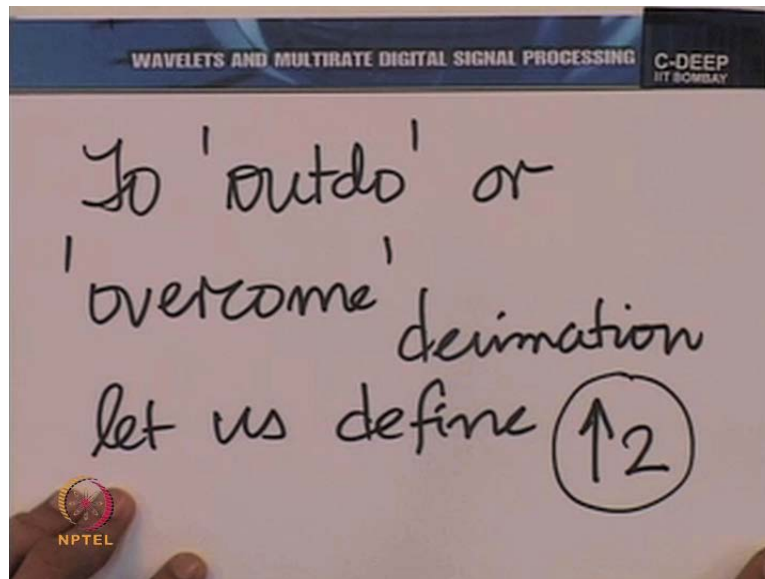 WAVELETS AND MULTIRATE DIGITAL SIGNAL PROCESSING
C-DEEP
IIT BOMBAY
To 'outdo' or
'overcome' decimation
let us define ↑2
NPTEL